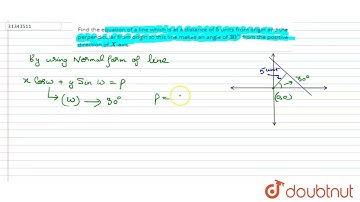 31343511
Find the equation of a line which is at a distance of 5 units from origin and the
perpendicular from origin to this line makes an angle of 30° from the positive
direction of X-axis.
By using Normal form of line
x Cosω + y Sin ω = P
(ω) → 30°
P =
5 unit
30°
(0,0)
doubtnut